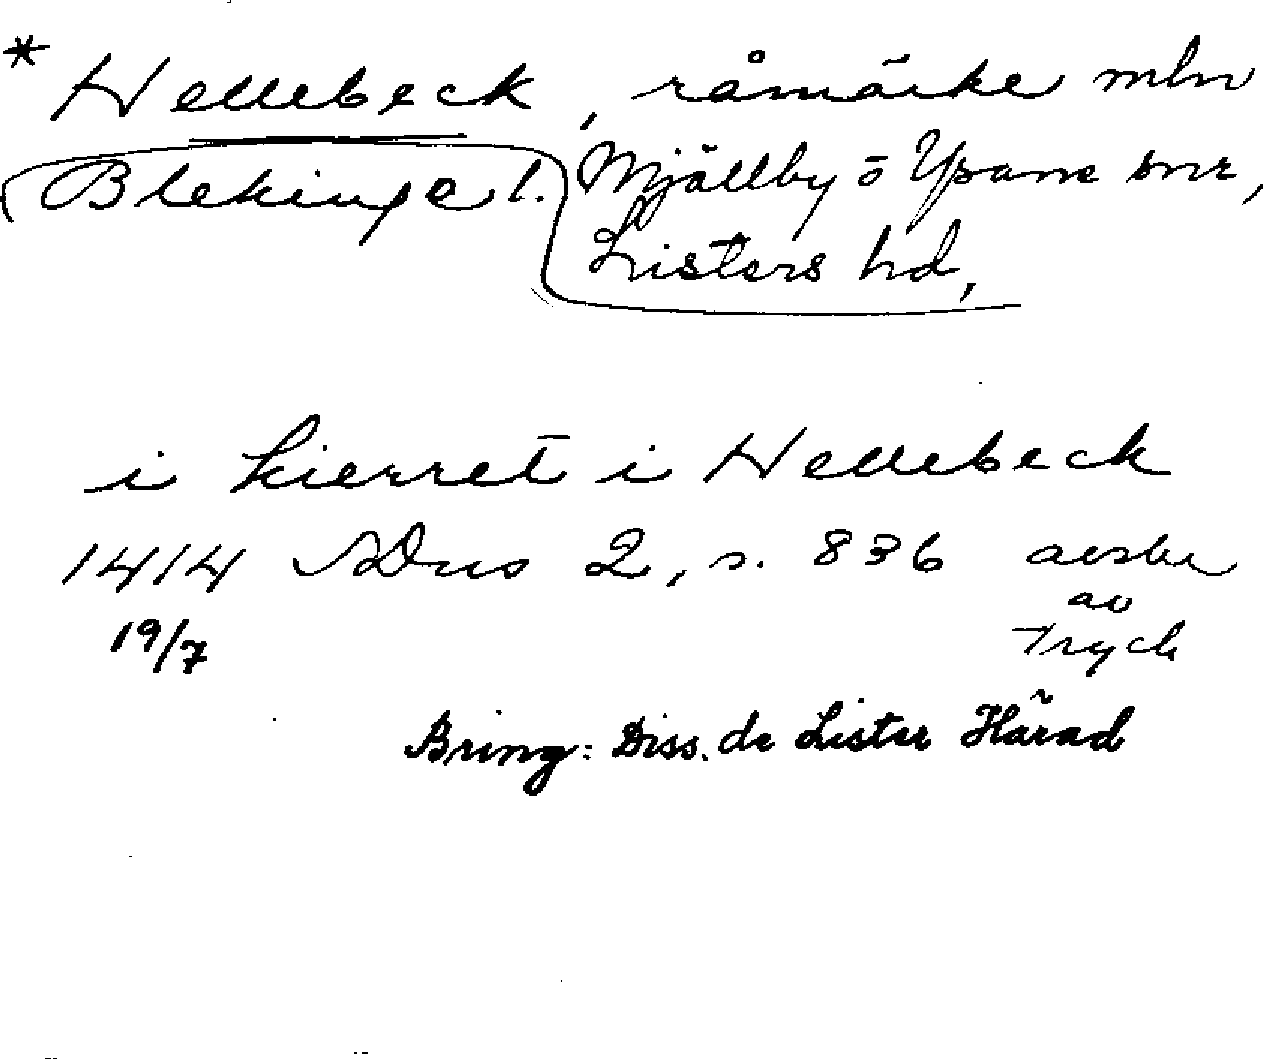 * Hellebeck, råmärke mln
Blekinge l. Mjällby o Ysane snr,
Listers hd,
i kierret i Hellebeck
1414 SDns 2, s. 836 avskr
19/7 av
tryck
Bring: Diss. de Lister Härad